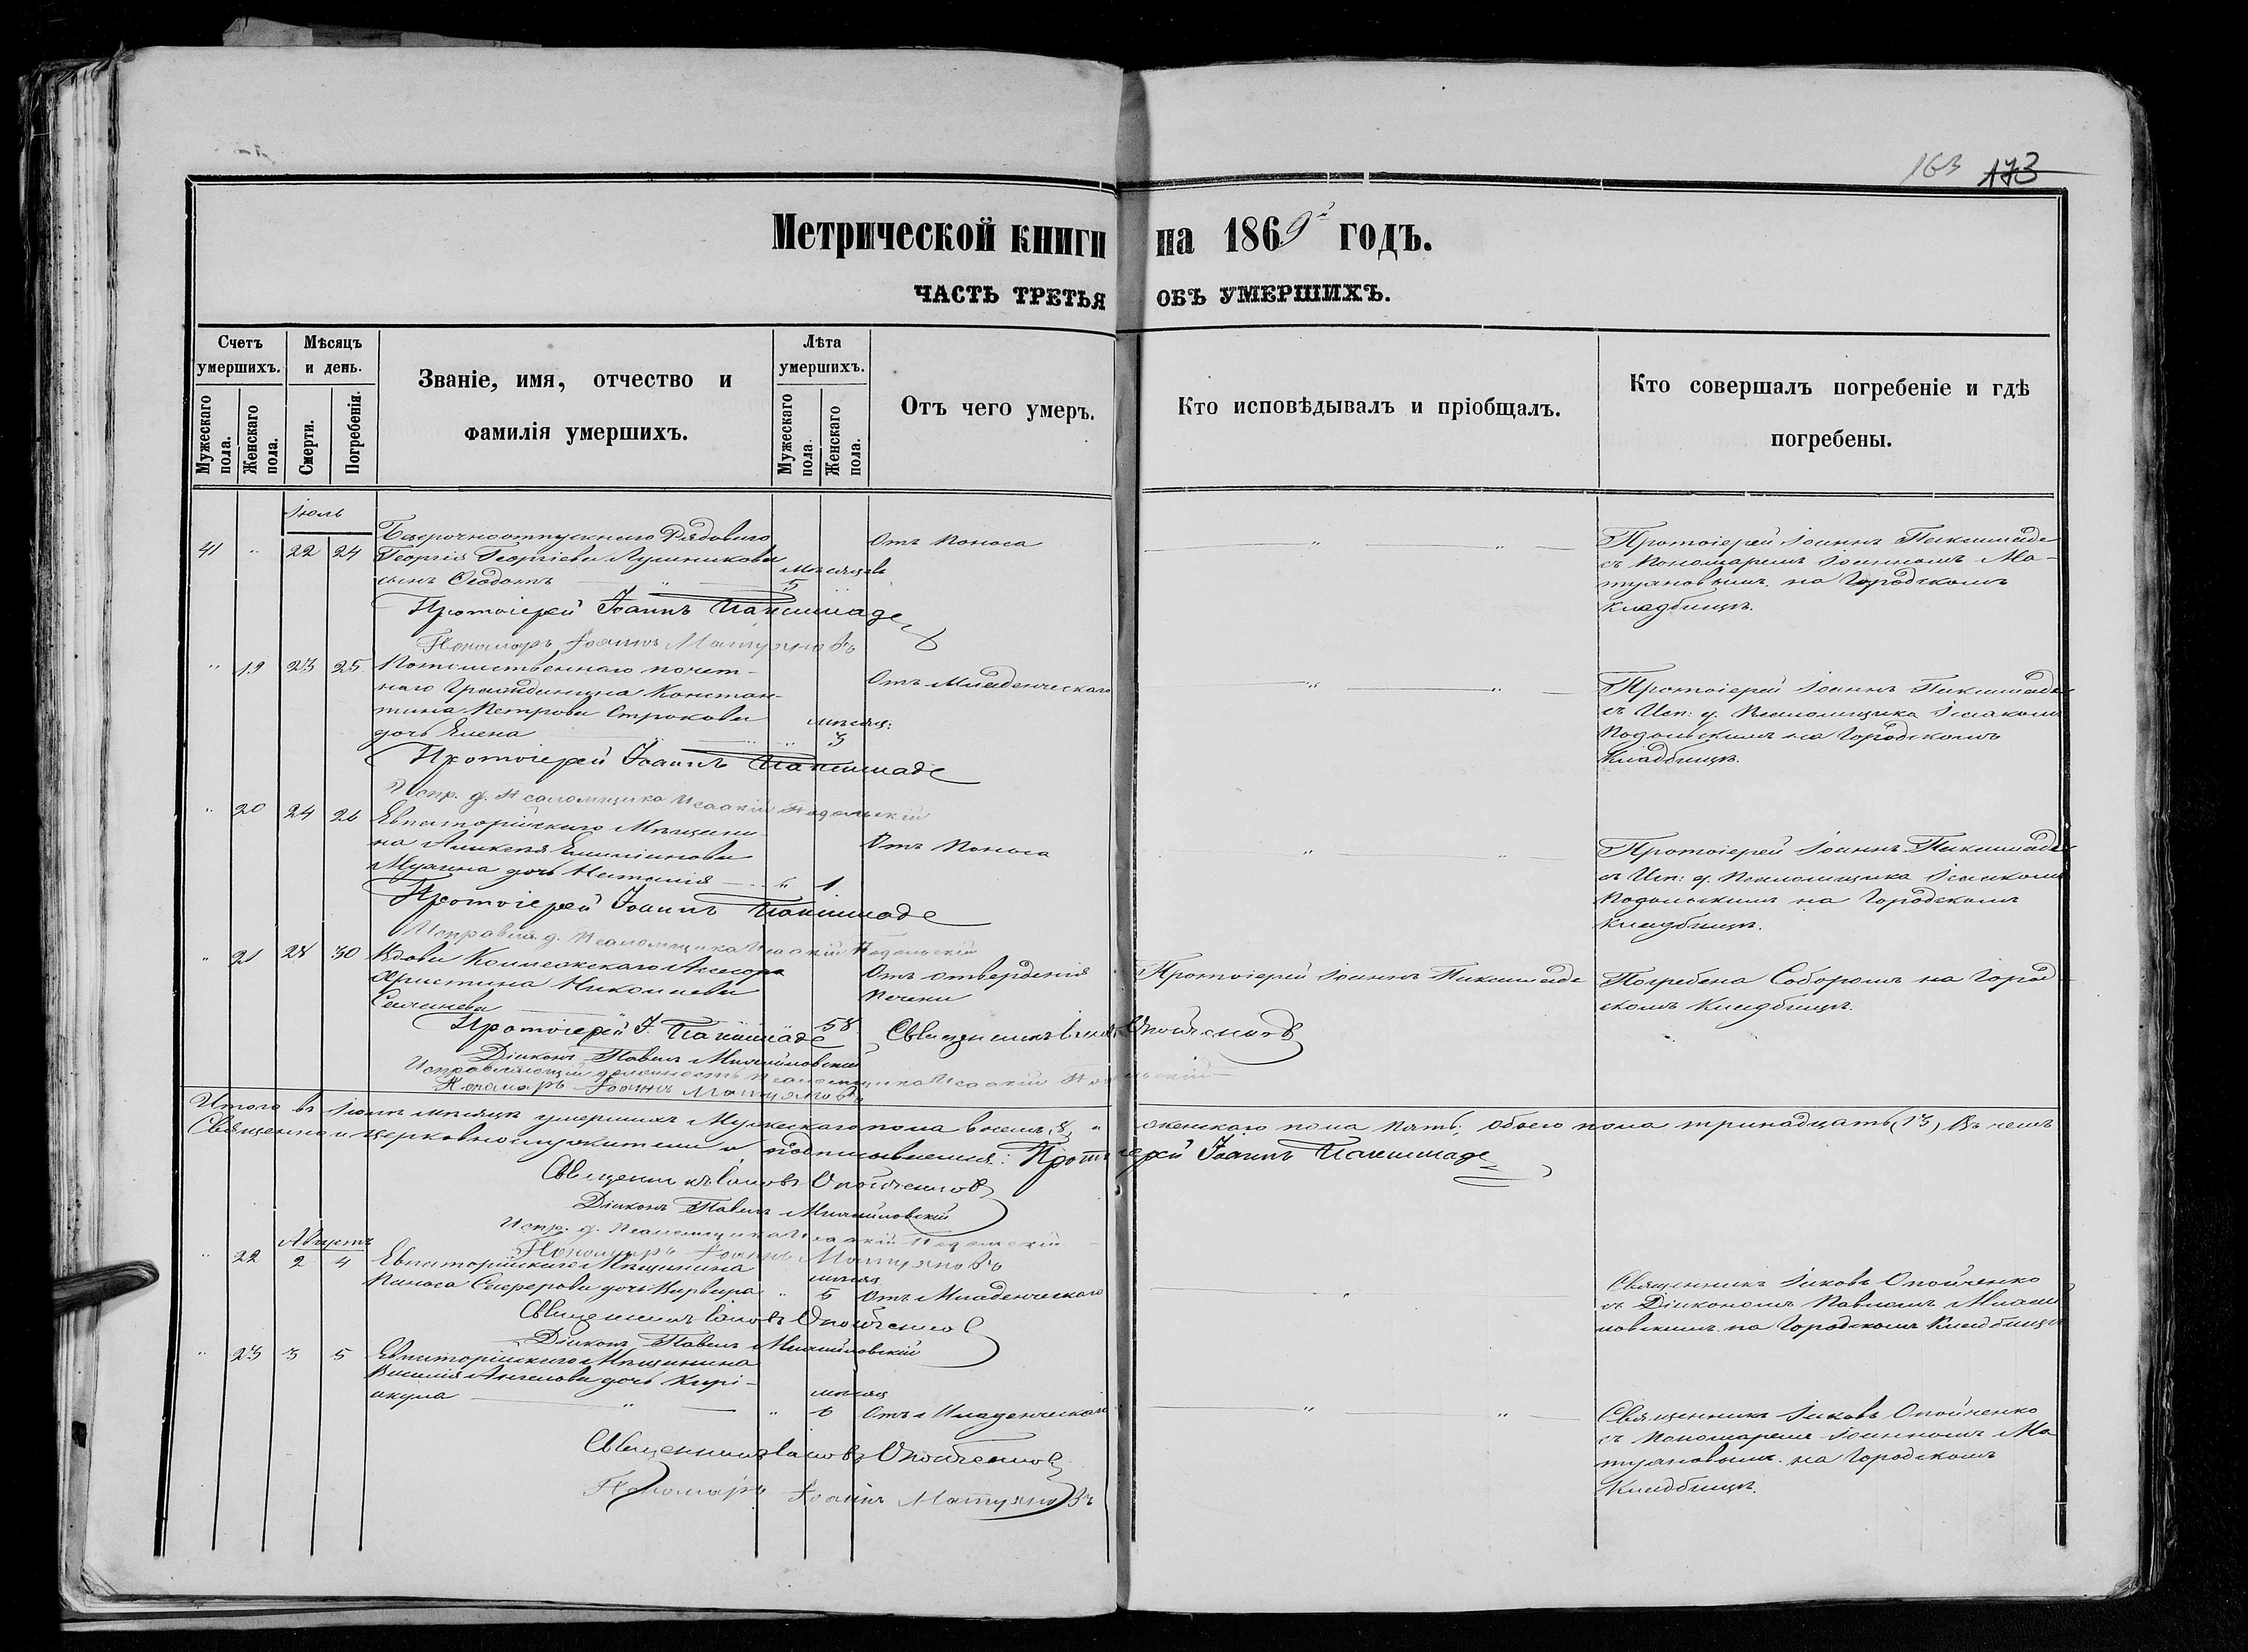 163 173
Метрической книги на 1869й годъ.
ЧАСТЬ ТРЕТЬЯ ОБЪ УМЕРШИХЪ.
Счетъ умершихъ.
Мужескаго пола.
Женскаго пола.
Мѣсяцъ и день.
Смерти.
Погребенія.
Званіе, имя, отчество и
фамилія умершихъ.
Лѣта умершихъ.
Мужескаго пола.
Женскаго пола.
Отъ чего умеръ.
Кто исповѣдывалъ и пріобщалъ.
Кто совершалъ погребеніе и гдѣ
погребены.
Іюль
41 " 22 24 Безсрочноотпускнаго Рядоваго
Георгія Георгіева
сынъ Ѳеодотъ
мѣсяцевъ
5
Отъ Поноса
Протоіерей Іоаннъ
съ Пономаремъ Іоанномъ Ма-
туяновымъ на Городскомъ
кладбищѣ.
Протоіерей Іоаннъ
Пономарь Іоаннъ Матуяновъ
" 19 23 25 Потомственнаго почет-
наго Гражданина Констан-
тина Петрова Строкова
дочь Елена
мѣсяц:
3
Отъ Младенческаго
Протоіерей Іоаннъ
съ Исп: д. Псаломщика Ісаакомъ
Подольскимъ на Городскомъ
Кладбищѣ.
Протоіерей Іоаннъ
Испр. д. Псаломщика Исаакій Подольскій
" 20 24 26 Евпаторійскаго Мѣщани-
на Алексѣя
дочь Наталія " 1
Отъ Поноса
Протоіерей Іоаннъ
съ Исп: д. Псаломщика Ісаакомъ
Подольскимъ на Городскомъ
Кладбищѣ.
Протоіерей Іоаннъ
Исправл. д. Псаломщика Исаакій Подольскій
" 21 28 30 Вдова Коллежскаго Асесора
Христина Николаева
58
Отъ отвердѣнія
печени
Протоіерей Іоаннъ
Погребена Соборомъ на Город-
скомъ Кладбищѣ.
Протоіерей І.
Священникъ Іаковъ Опойченковъ
Діаконъ Павелъ
Исправляющій должность псаломщика Исаакій Подольскій
Пономарь Іоаннъ Матуяновъ
Итого въ Іюлѣ мѣсяцѣ умершихъ Мужескаго пола восемь, 8, " женскаго пола пять; обоего пола тринадцать (13) Въ чемъ
Священно и церковнослужители и подписываемся: Протоіерей Іоаннъ
Священникъ Іаковъ Опойченковъ
Діаконъ Павелъ
Испр. д. Псаломщика Исаакій Подольскій
Пономарь Іоаннъ Матуяновъ
Августъ
" 22 2 4 Евпаторійскаго Мѣщанина
дочь Варвара
мѣсяц
5
Отъ Младенческаго
Священникъ Іаковъ Опойченко
съ Діакономъ Павломъ
на Городскомъ Кладбищѣ
Священникъ Іаковъ Опойченковъ
Діаконъ Павелъ
" 23 3 5 Евпаторійскаго Мѣщанина
Василія Ангелова дочь Кирі-
акула
мѣсяц
6
Отъ Младенческаго
Священникъ Іаковъ Опойченко
съ Пономаремъ Іоанномъ Ма
туяновымъ на Городскомъ
Кладбищѣ.
Священникъ Іаковъ Опойченковъ
Пономарь Іоаннъ Матуяновъ